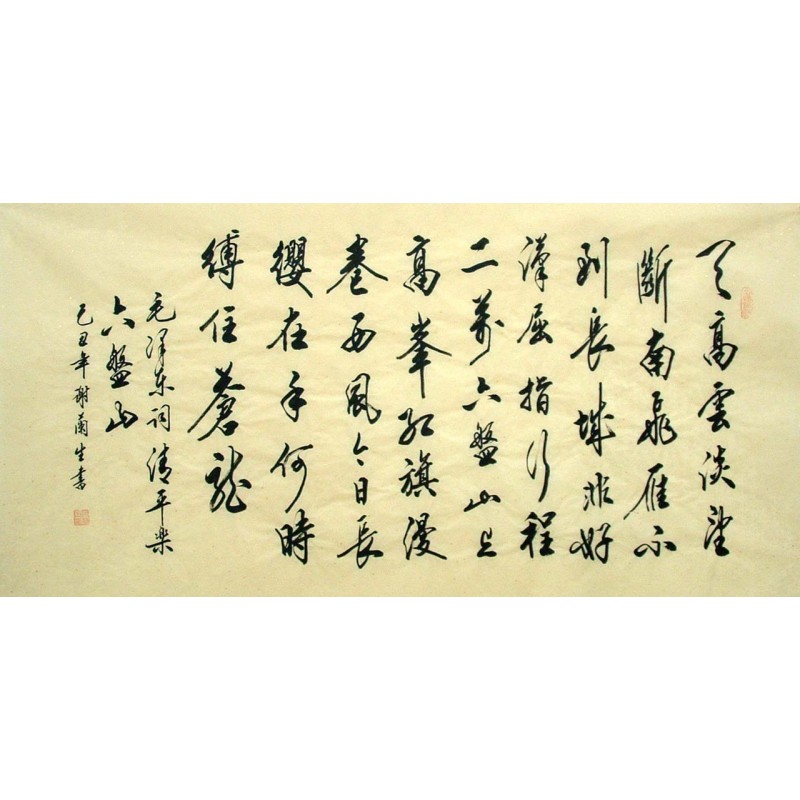 天高雲淡望
斷南飛雁不
到長城非好
漢屈指行程
二萬六盤山上
高峯紅旗漫
卷西風今日長
纓在手何時
縛住蒼龍
毛澤東詞清平樂
六盤山
己丑年謝蘭生書